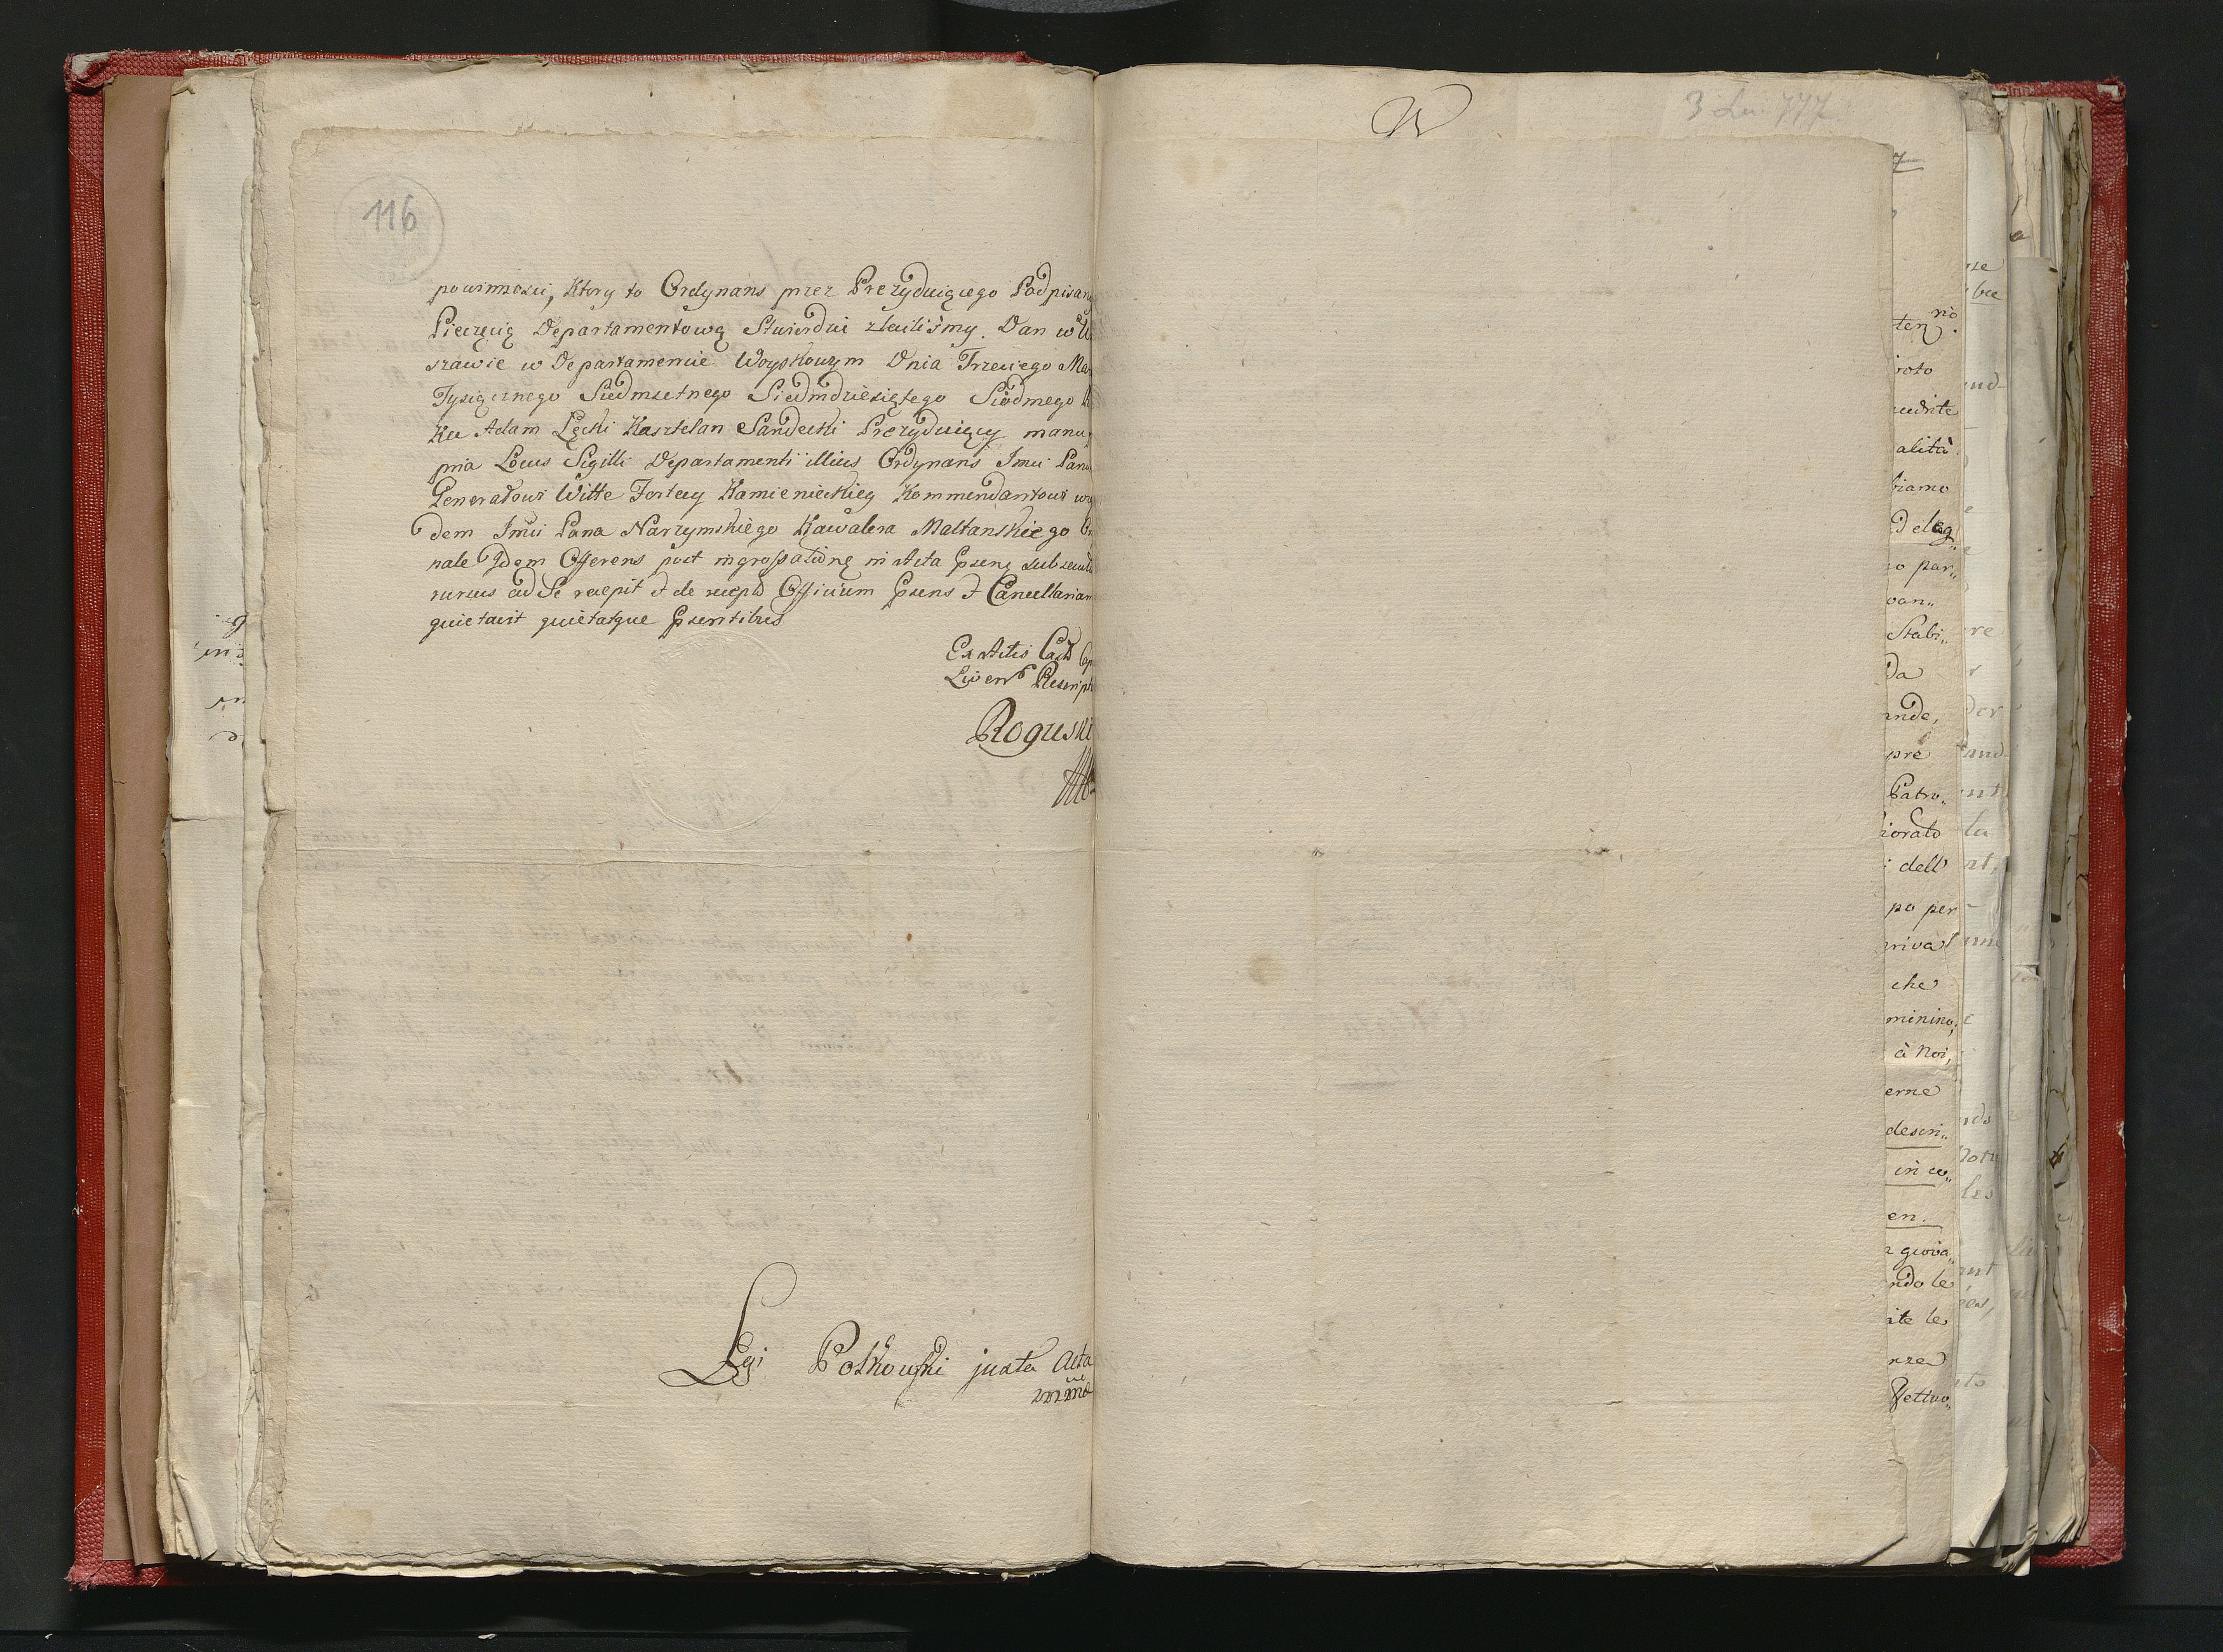 116
powinności, Ktory to Ordynans przez Prezyduiącego Podpisany
Pieczęcią Departamentową Stwierdzić zleciliśmy. Dan w
szawie w Departamencie Woyskowym Dnia Trzeciego Ma
Tysiącznego Siedmsetnego Siedmdziesiątego Siódmego
Ku Adam Łącki Kasztelan Sandecki Prezyduiący manu
pria Locus Sigilli Departamenti illius Ordynans Jmci Panu
Generałowi Witte Fortecy Kamienieckiey Kommendantowi wzglę
dem Jmci Pana Narzymskiego Kawalera Maltanskiego Or
nale Idem Offerens post ingrossationē in Acta Psenς subsecut
rursus ad Se recepit & de recepto Officium Psens & Cancellariam
quietavit quietatque Psentibus
Ex Actis Cast Cap
Livens Rescript
Roguski
Legi Potkowski juxta Acta
W
3 777
7
ten
alità
Deleg„
no par„
Stabi„
Da
pre
Patro„
iorato
dell
po per
che
à Noi,
erne
descri„
en.
giova„
ndo le